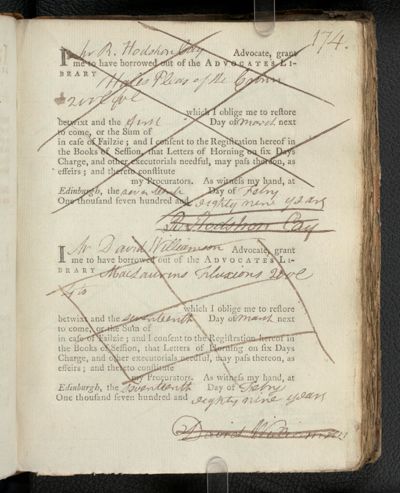 174.
I Mr R. Hodshon Cay Advocate, grant
me to have borrowed out of the ADVOCATES LI-
BRARY Hales Pleas of the Crown
2 vols
which I oblige me to reſtore
betwixt and the first Day of March next
to come, or the Sum of
in caſe of Failzie; and I conſent to the Regiſtration hereof in
the Books of Seſſion, that Letters of Horning on ſix Days
Charge, and other executorials needful, may paſs thereon, as
effeirs; and thereto conſtitute
my Procurators. As witneſs my hand, at
Edinburgh, the seventeenth Day of Febry
One thouſand ſeven hundred and eighty nine years
R. Hodshon Cay
I Mr David Williamson Advocate, grant
me to have borrowed out of the ADVOCATES LI-
BRARY MacLaurins Fluxions 2 vol
4to
which I oblige me to reſtore
betwixt and the seventeenth Day of March next
to come, or the Sum of
in caſe of Failzie; and I conſent to the Regiſtration hereof in
the Books of Seſſion, that Letters of Horning on ſix Days
Charge, and other executorials needful, may paſs thereon, as
effeirs; and thereto conſtitute
my Procurators. As witneſs my hand, at
Edinburgh, the seventeenth Day of Febry
One thouſand ſeven hundred and eighty nine years
David Williamson